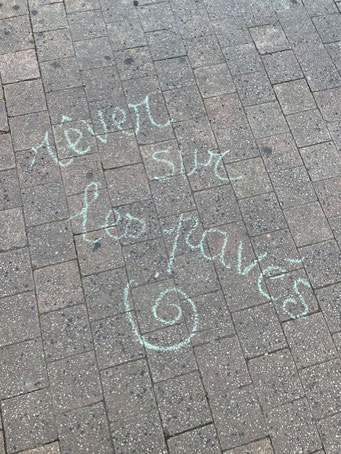 rêver
sur
les pavés